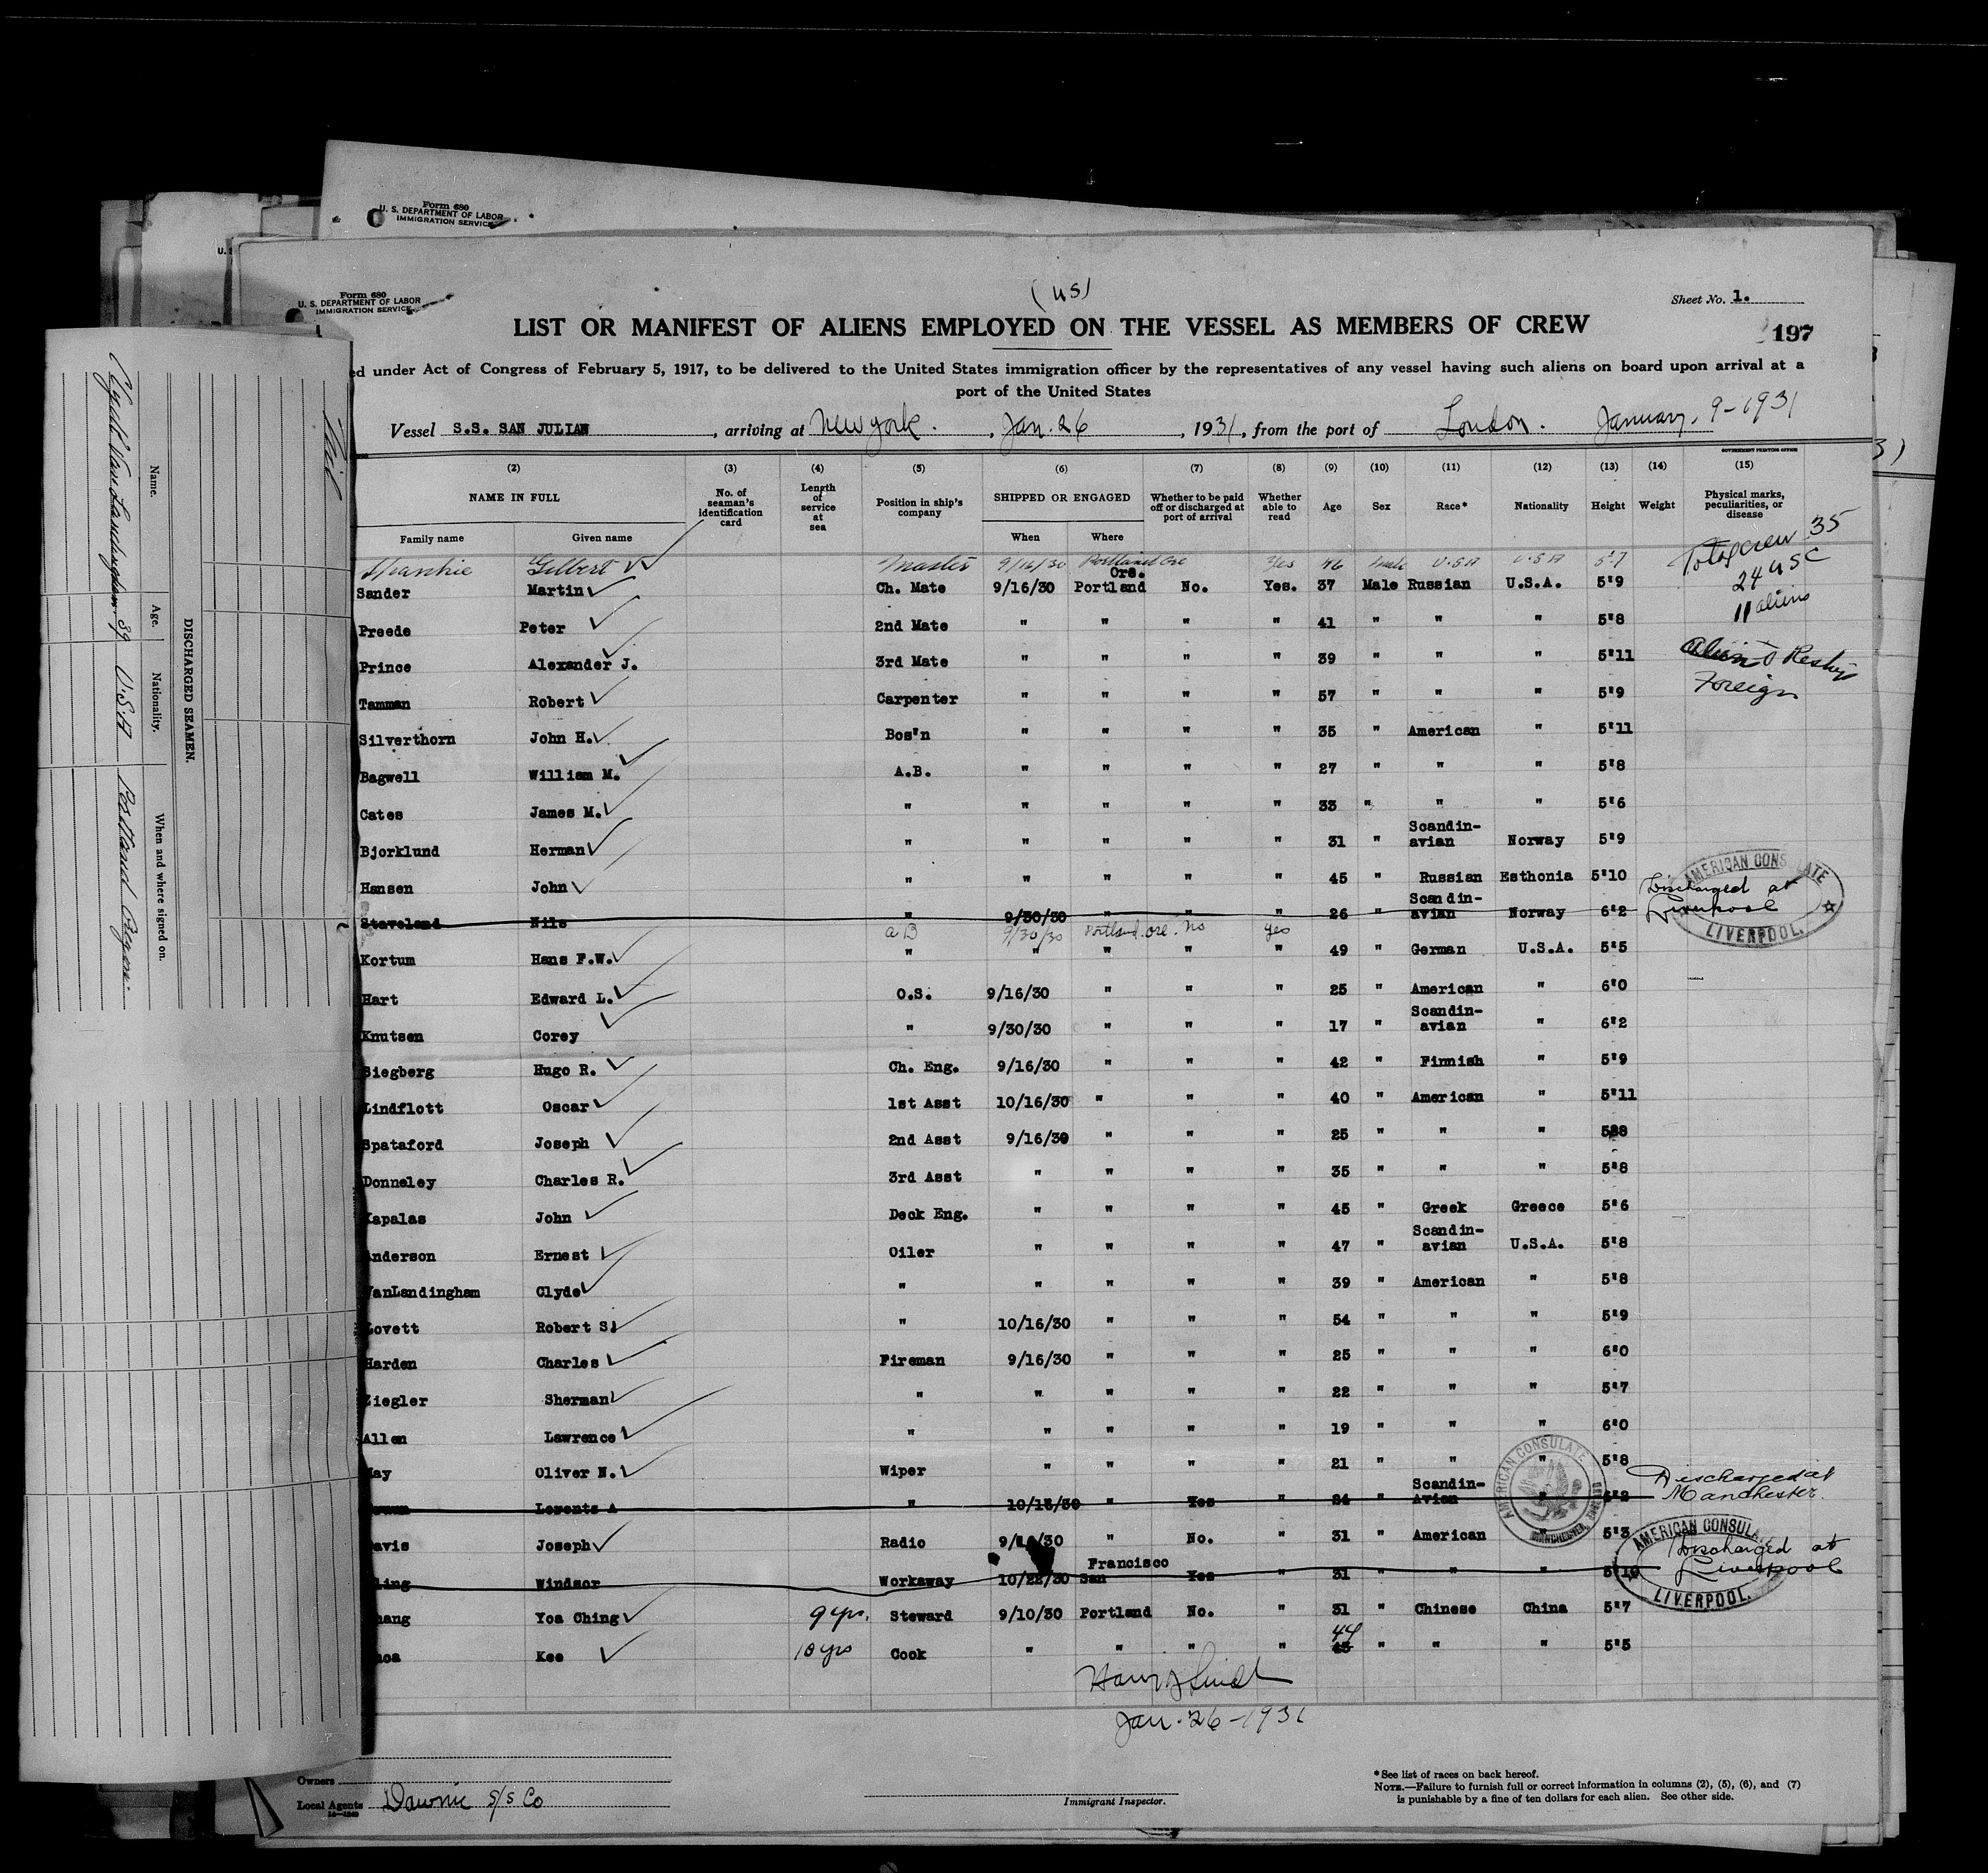 Form 680
U. S. DEPARTMENT OF LABOR
IMMIGRATION SERVICE
Form 680
U. S. DEPARTMENT OF LABOR
IMMIGRATION SERVICE
(US)
Sheet No. 1.
LIST OR MANIFEST OF ALIENS EMPLOYED ON THE VESSEL AS MEMBERS OF CREW
197
ed under Act of Congress of February 5, 1917, to be delivered to the United States immigration officer by the representatives of any vessel having such aliens on board upon arrival at a
port of the United States
Vessel S.S. SAN JULIAN, arriving at New York., Jan. 26, 1931, from the port of London. January, 9-1931
GOVERNMENT PRINTING OFFICE
(2) (3) (4) (5) (6) (7) (8) (9) (10) (11) (12) (13) (14) (15)
NAME IN FULL No. of seaman's identification card Length of service at sea Position in ship's company SHIPPED OR ENGAGED Whether to be paid off or discharged at port of arrival Whether able to read Age Sex Race* Nationality Height Weight Physical marks, peculiarities, or disease
Family name Given name When Where
Gilbert V Master 9/16/30 Portland Ore Yes 46 Male U.S.A U.S.A 5'7
Total crew 35
24 USC
11 aliens
Aliens Reship
Foreign
Sander Martin Ch. Mate 9/16/30 Portland Ore. No. Yes. 37 Male Russian U.S.A. 5'9
Preede Peter 2nd Mate " " " " 41 " " " 5'8
Prince Alexander J. 3rd Mate " " " " 39 " " " 5'11
Tamman Robert Carpenter " " " " 57 " " " 5'9
Silverthorn John H. Bos'n " " " " 35 " American " 5'11
Bagwell William M. A.B. " " " " 27 " " " 5'8
Cates James M. " " " " " 33 " " " 5'6
Bjorklund Herman " " " " " 31 " Scandin-avian Norway 5'9
Hansen John " " " " " 45 " Russian Esthonia 5'10
Staveland Nils " 9/30/30 " " " 26 " Scandin-avian Norway 6'2 Discharged at Liverpool
AMERICAN CONSULATE LIVERPOOL.
AB 9/30/30 Portland. Ore. No Yes
Kortum Hans F.W. " " " " " 49 " German U.S.A. 5'5
Hart Edward L. O.S. 9/16/30 " " " 25 " American " 6'0
Knutsen Corey " 9/30/30 " " " 17 " Scandin-avian " 6'2
Siegberg Hugo R. Ch. Eng. 9/16/30 " " " 42 " Finnish " 5'9
Lindflott Oscar 1st Asst 10/16/30 " " " 40 " American " 5'11
Spataford Joseph 2nd Asst 9/16/30 " " " 25 " " " 5'8
Donneley Charles R. 3rd Asst " " " " 35 " " " 5'8
Kapalas John Deck Eng. " " " " 45 " Greek Greece 5'6
Anderson Ernest Oiler " " " " 47 " Scandin-avian U.S.A. 5'8
VanLandingham Clyde " " " " " 39 " American " 5'8
Lovett Robert S. " 10/16/30 " " " 54 " " " 5'9
Harden Charles Fireman 9/16/30 " " " 25 " " " 6'0
Ziegler Sherman " " " " " 22 " " " 5'7
Allen Lawrence " " " " " 19 " " " 6'0
May Oliver N. Wiper " " " " 21 " " " 5'8
Lorents A " 10/15/30 " Yes " 24 " Scandin-Avian " 6'2 Discharged at Manchester.
AMERICAN CONSULATE MANCHESTER
avis Joseph Radio 9/16/30 " No. " 31 " American " 5'3
ling Windsor Workaway 10/22/30 San Francisco Yes " 31 " " " 5'10 Discharged at Liverpool
AMERICAN CONSULATE LIVERPOOL.
hang Yoa Ching 9 yrs. Steward 9/10/30 Portland No. " 31 " Chinese China 5'7
hoa Kee 10 yrs Cook " " " " 44 " " " 5'5
Jan. 26-1931
Owners
Local Agents S/S Co
Immigrant Inspector.
*See list of races on back hereof.
NOTE.—Failure to furnish full or correct information in columns (2), (5), (6), and (7)
is punishable by a fine of ten dollars for each alien. See other side.
DISCHARGED SEAMEN.
Name. Age. Nationality. When and where signed on.
Clyde Van Landingham. 39 U.S.A Portland Oregon